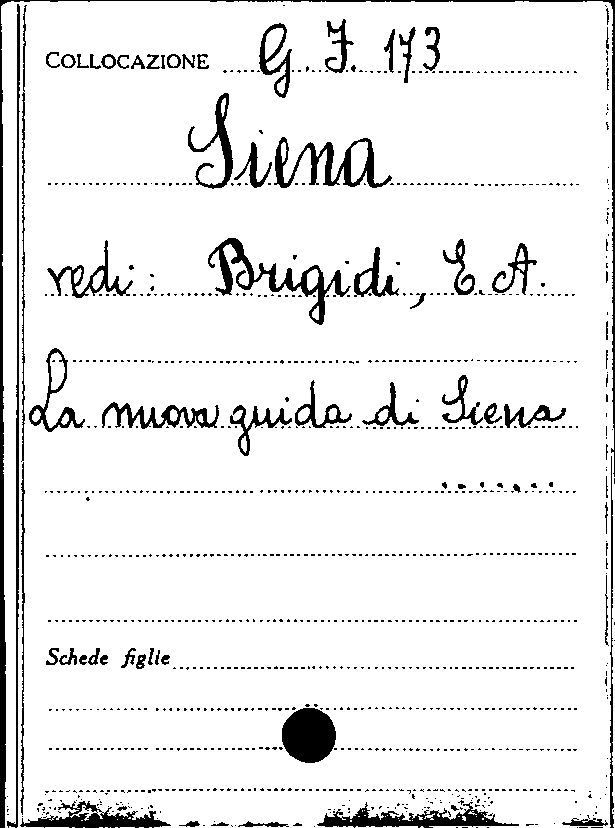 COLLOCAZIONE G. I. 173
Siena
vedi: Brigidi, E. A.
La nuova guida di Siena
.......
Schede figlie